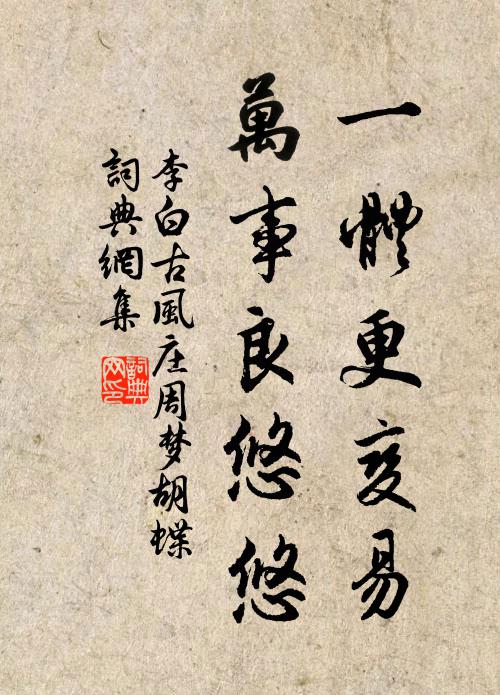 一體更變易
萬事良悠悠
李白古風庄周梦胡蝶
詞典網集
詞典
网印